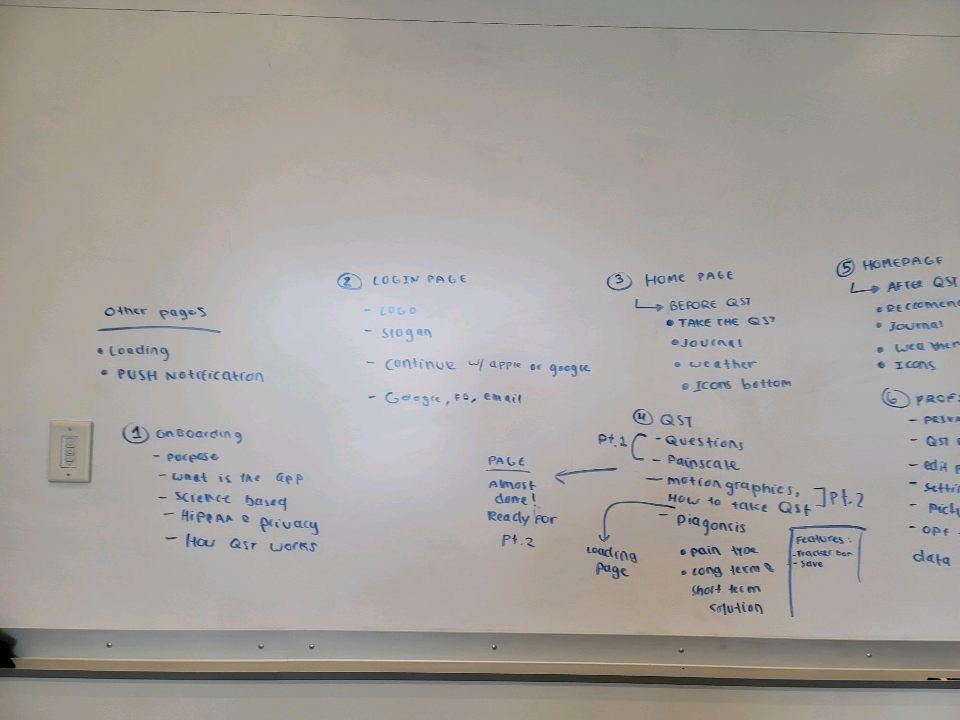 Other pages
• Loading
• PUSH Notification
① OnBoarding
- Porpose
- What is the app
- Science based
- HIPPAA & privacy
- How QST works
② LOGIN PAGE
- LOGO
- Slogan
- Continue w/ apple or google
- Google, FB, email
③ HOME PAGE
BEFORE QST
• TAKE THE QST
• Journal
• weather
• Icons bottom
④ QST
Pt.1
- Questions
- Painscale
- motion graphics,
How to take QST
Pt.2
- Diagonsis
• pain type
• Long term &
short term
solution
PAGE
Almost
done!
Ready For
Pt.2
Loading
Page
Features:
- Tracker bar
- Save
⑤ HOMEPAGE
AFTER QST
• Recommen
• Journal
• Weather
• Icons
⑥ PROF
- PRIVA
- QST
- edit P
- Setti
- Pict
- OPT
data